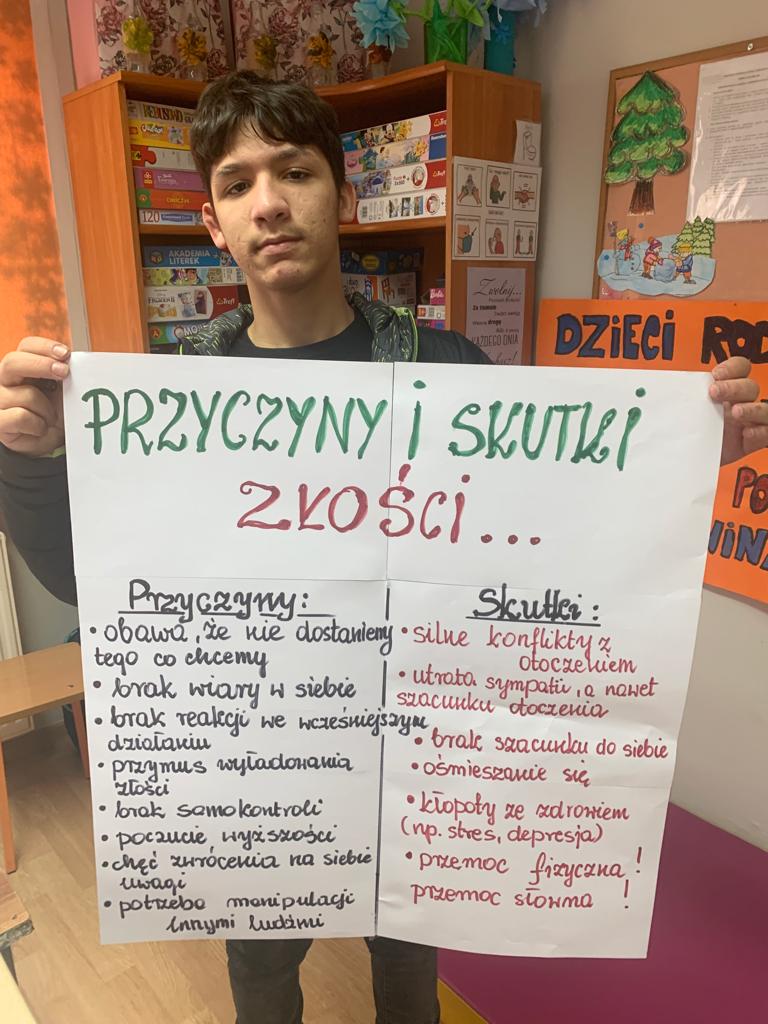 PRZYCZYNY i SKUTKI
ZŁOŚCi...
Przyczyny:
• obawa, że nie dostaniemy
tego co chcemy
• brak wiary w siebie
• brak reakcji we wcześniejszym
działaniu
• przymus wyładowania
złości
• brak samokontroli
• poczucie wyższości
• chęć zwrócenia na siebie
uwagi
• potrzeba manipulacji
innymi ludźmi
Skutki:
• silne konflikty z
otoczeniem
• utrata sympatii, a nawet
szacunku otoczenia
• brak szacunku do siebie
• ośmieszanie się
• kłopoty ze zdrowiem
(np. stres, depresja)
• przemoc fizyczna!
przemoc słowna !
DZiECi ROD
PO
WINN
AKADEMIA
LITEREK
120
Zwolnij...
KAŻDEGO DNIA